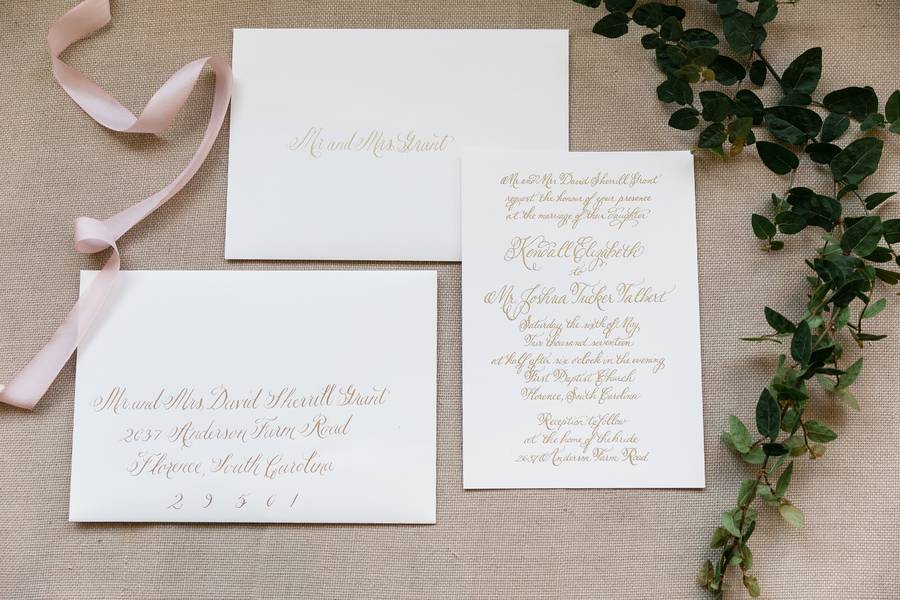 Mr. and Mrs. Grant
Mr. and Mrs. David Sherrill Grant
request the honour of your presence
at the marriage of their daughter
Kendall Elizabeth
to
Mr. Joshua Tucker Talbert
Saturday, the sixth of May,
Two thousand seventeen
at half after six o'clock in the evening
First Baptist Church
Florence, South Carolina
Reception to follow
at the home of the bride
2637 Anderson Farm Road
Mr. and Mrs. David Sherrill Grant
2637 Anderson Farm Road
Florence, South Carolina
29501